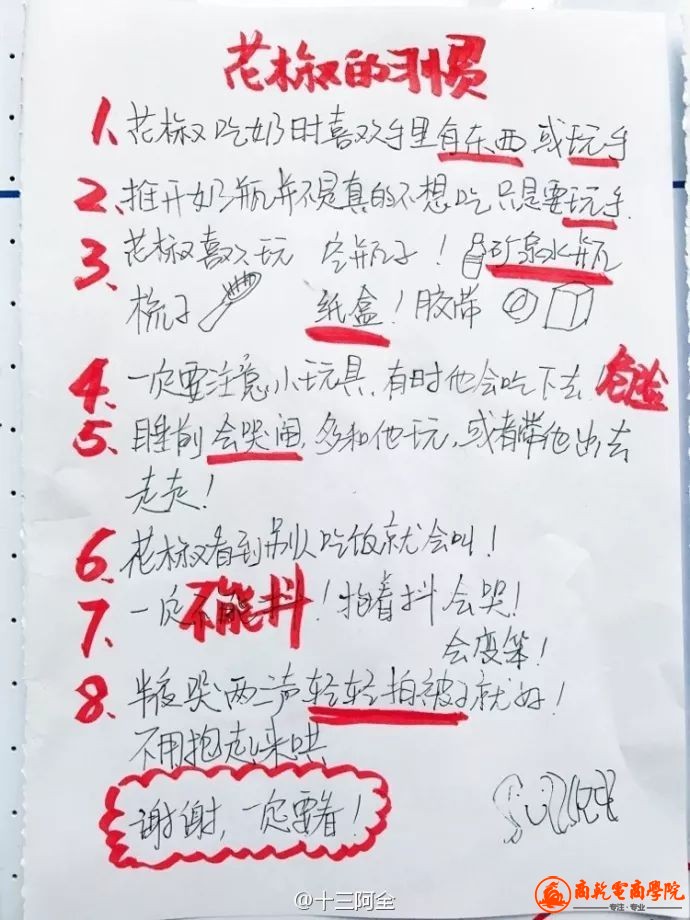 花椒的习惯
1、花椒吃奶时喜欢手里有东西或玩手
2、推开奶瓶并不是真的不想吃只是要玩手.
3、花椒喜欢玩 空瓶子！矿泉水瓶
梳子 纸盒！胶带
4、一定要注意小玩具,有时他会吃下去！危险
5、睡前会哭闹,多和他玩,或者带他出去
走走！
6、花椒看到别人吃饭就会叫！
7、一定不能抖！抱着抖会哭！
会变笨！
8、半夜哭两三声轻轻拍被子就好！
不用抱起来哄
谢谢,一定要看！
@十三阿全
商乾电商學院
专注·专业